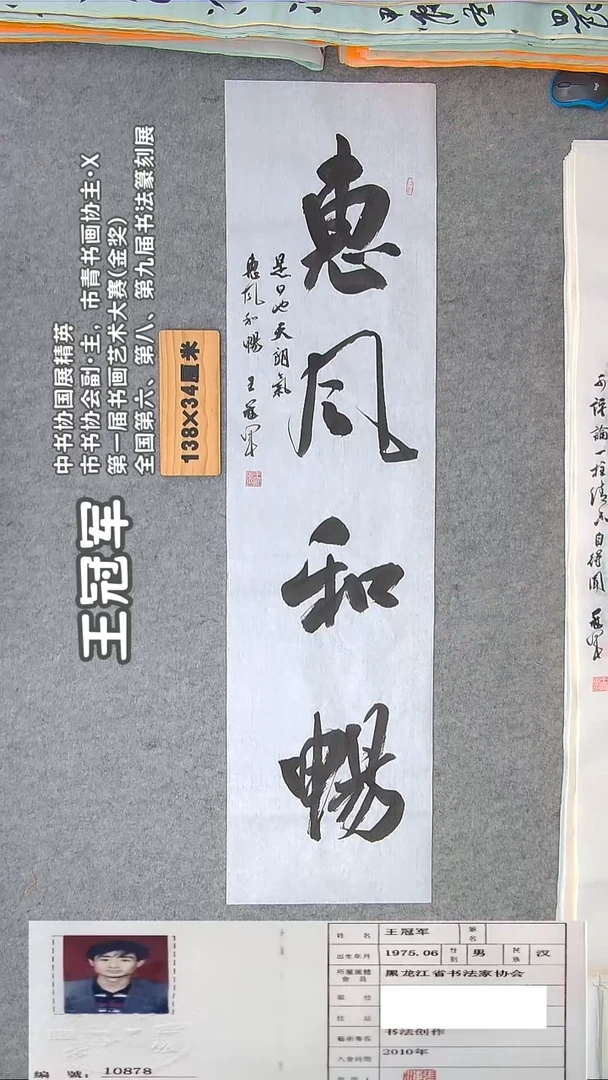 惠风和暢
是日也天朗氣
惠风和暢 王冠军
中书协国展精英
市书协会副·主，市青书画协主·X
第一届书画艺术大赛(金奖)
全国第六、第八、第九届书法篆刻展
138X34厘米
王冠军
論一柱清香自得闻 冠军
姓名 王冠军 笔名
出生年月 1975.06 性别 男 民族 汉
所属团体会员 黑龙江省书法家协会
职位
书法创作
入会时间 2010年
编號：10878